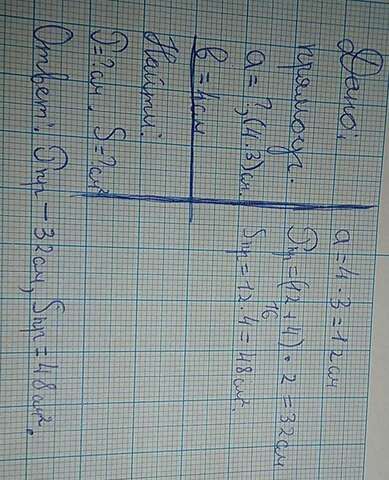 Дано:
прямоуг.
a = ?, (4·3) см.
b = 4см
Найти:
P = ? см, S = ? см²
a = 4 · 3 = 12 см
Pпр = (12 + 4) · 2 = 32 см
16
Sпр = 12 · 4 = 48 см².
Ответ: Pпр – 32 см, Sпр = 48 см².